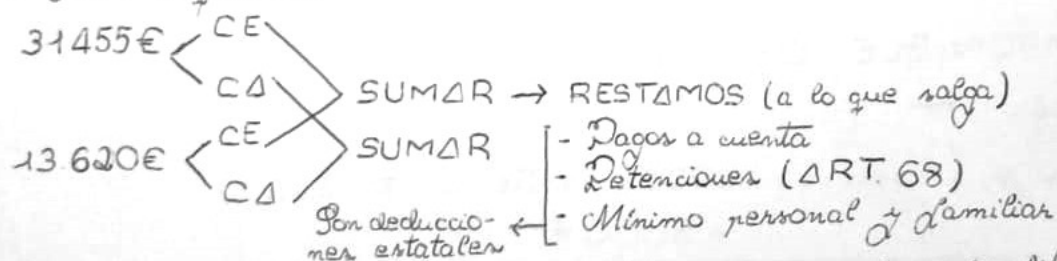 31455€
CE
CA
SUMAR → RESTAMOS (a lo que salga)
13.620€
CE
CA
SUMAR
- Pagos a cuenta
- Retenciones (ART. 68)
- Mínimo personal y familiar
Son deduccio-
nes estatales ←